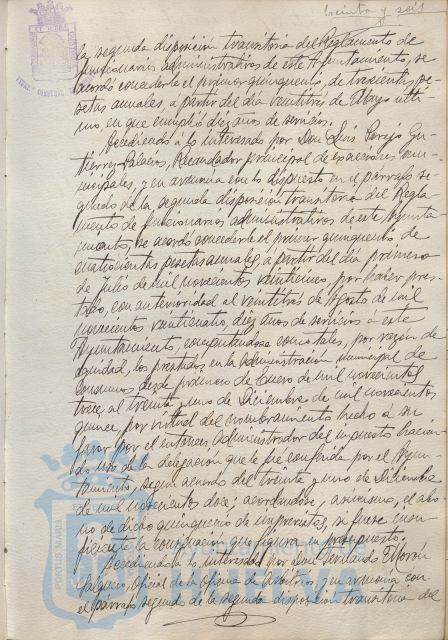 treinta y seis
la segunda disposición transitoria del Reglamento de
funcionarios administrativos de este Ayuntamiento, se
acordó concederle el primer quinquenio, de trescientas pe-
setas anuales, a partir del día veintitres de Mayo últi-
mo, en que cumplió diez años de servicio.
Accediendo a lo interesado por Don Luis Parejo Gu-
tierrez-Palacios, Recaudador principal de exacciones mu-
nicipales, y en armonía con lo dispuesto en el párrafo se-
gundo de la segunda disposición transitoria del Regla-
mento de funcionarios administrativos de este Ayunta-
miento, se acordó concederle el primer quinquenio de
cuatrocientas pesetas anuales, a partir del día primero
de Julio de mil novecientos veintinueve, por haber pres-
tado, con anterioridad al veintitrés de Agosto de mil
novecientos veinticuatro, diez años de servicios a este
Ayuntamiento, computandose como tales, por razón de
equidad, los prestados en la Administración municipal de
Consumos desde primero de Enero de mil novecientos
trece, al treinta y uno de Diciembre de mil novecientos
quince, por virtud del nombramiento hecho a su
favor por el entonces Administrador del impuesto hacien-
do uso de la delegación que le fue conferida por el Ayun-
tamiento, según acuerdo del treinta y uno de Diciembre
de mil novecientos doce; acordandose, asimismo, el abo-
no de dicho quinquenio de imprevistos, si fuese insu-
ficiente la consignación que figura en presupuesto.
Accediendo a lo interesado por Don Servando
Oficial de la Oficina de Arbitrios, y en armonía con
el párrafo segundo de la segunda disposición transitoria del
PORTUS MARIS
Ayuntamiento de